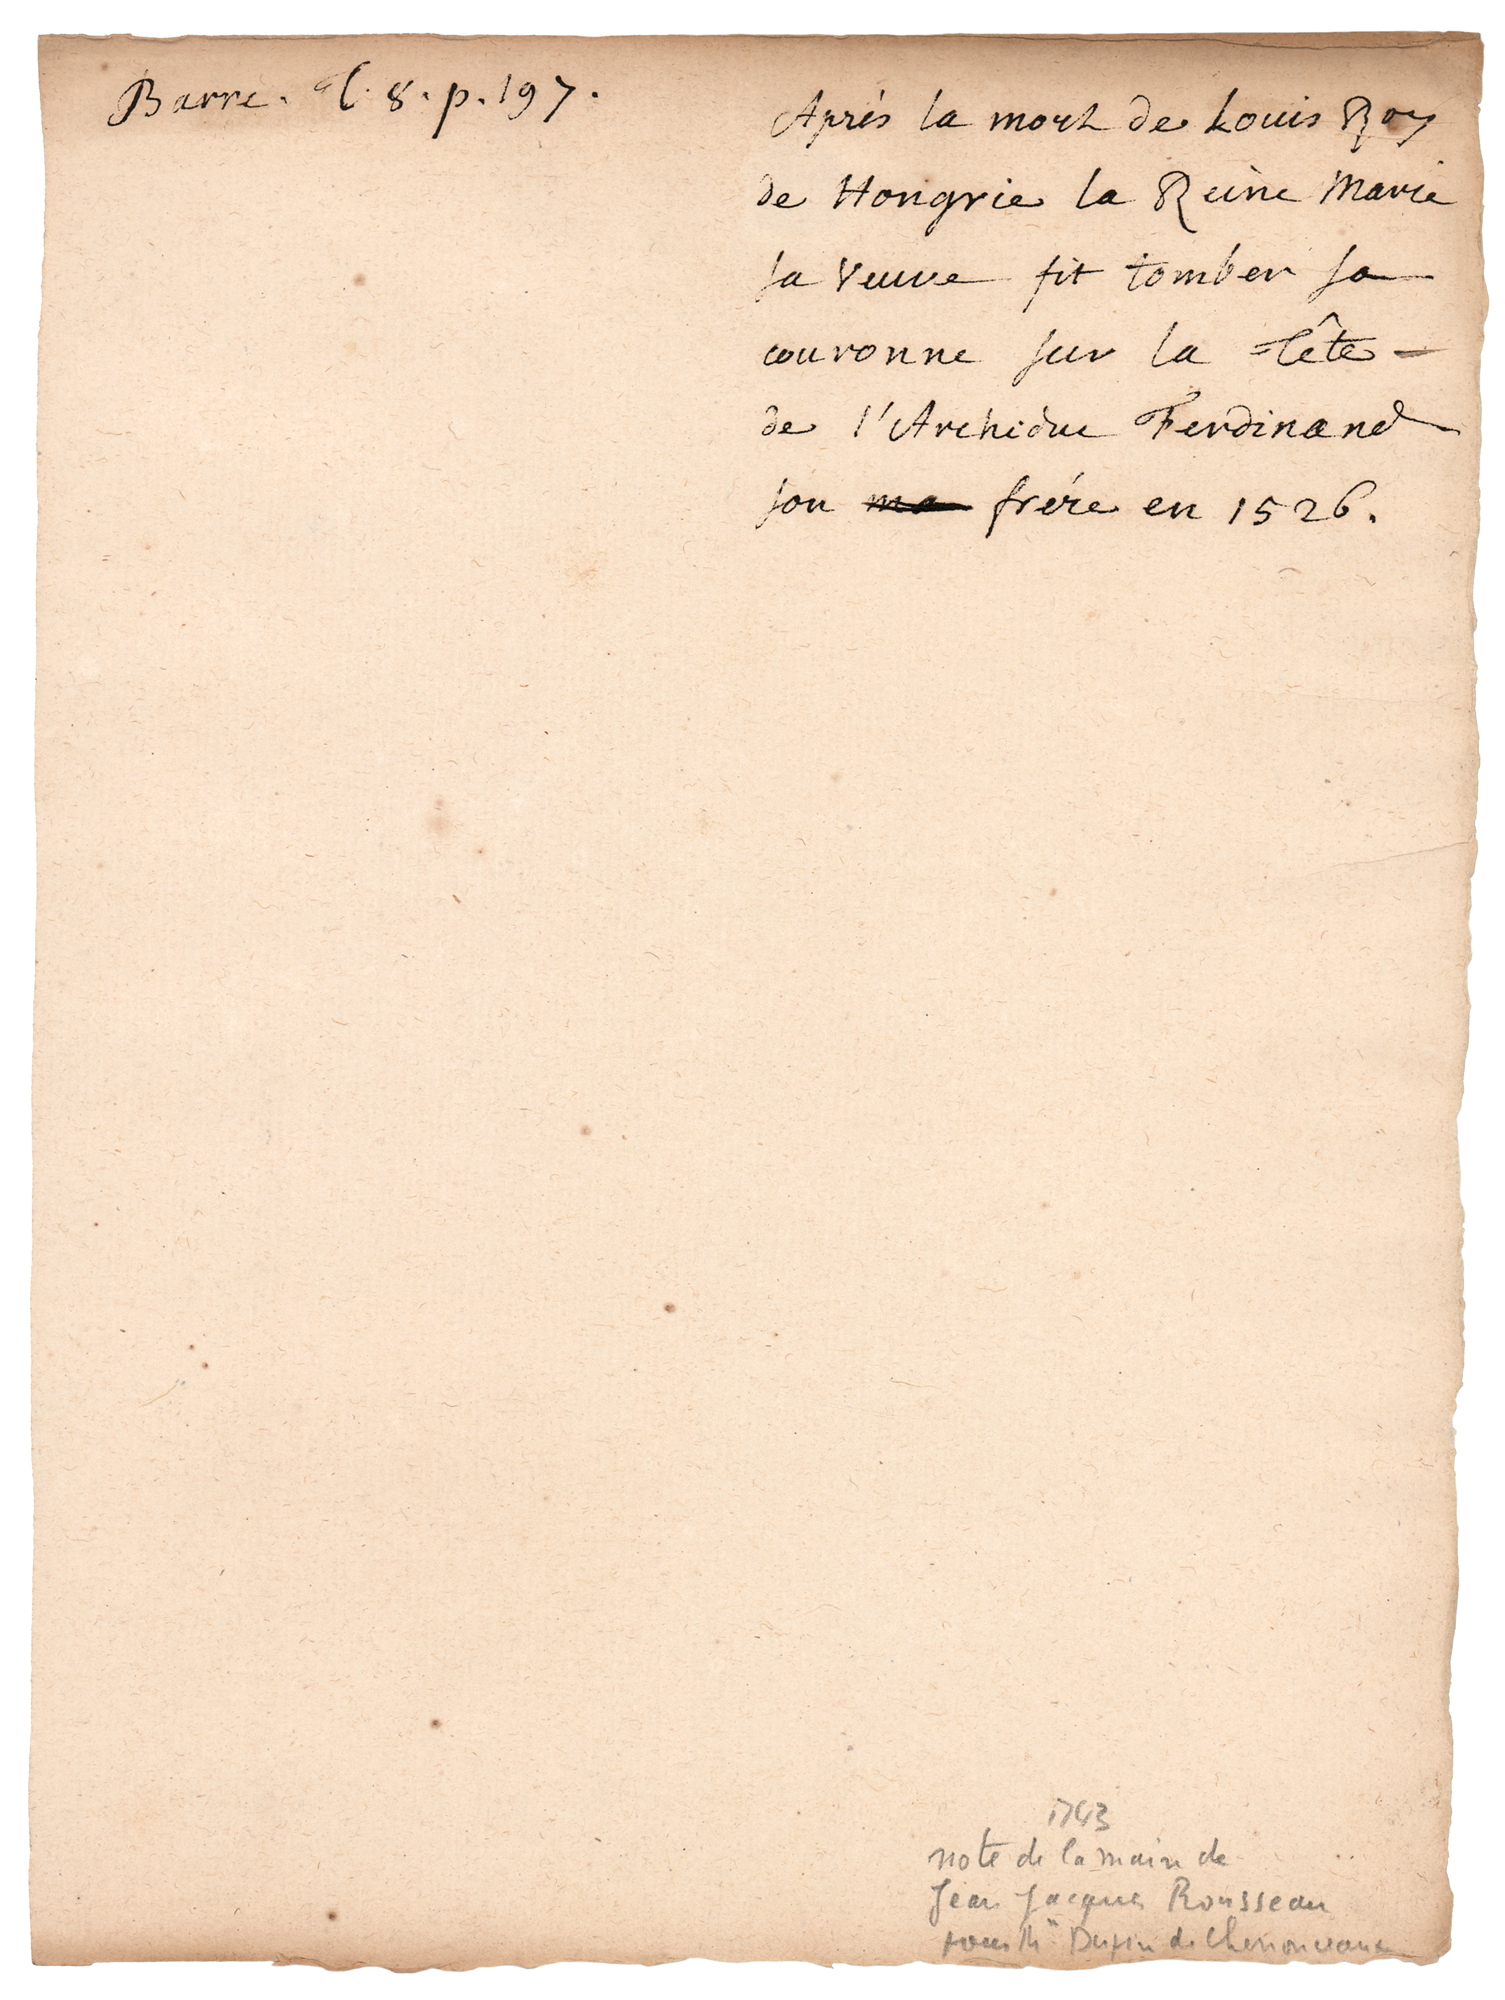 Barre. T. 8. p. 197.
Aprés la mort de Louis Roy
de Hongrie la Reine Marie
sa Veuve fit tomber sa
couronne sur la Tête
de l'Archiduc Ferdinand
son ma frére en 1526.
1743
note de la main de
Jean Jacques Rousseau
pour Me Dupin de Chenonceaux